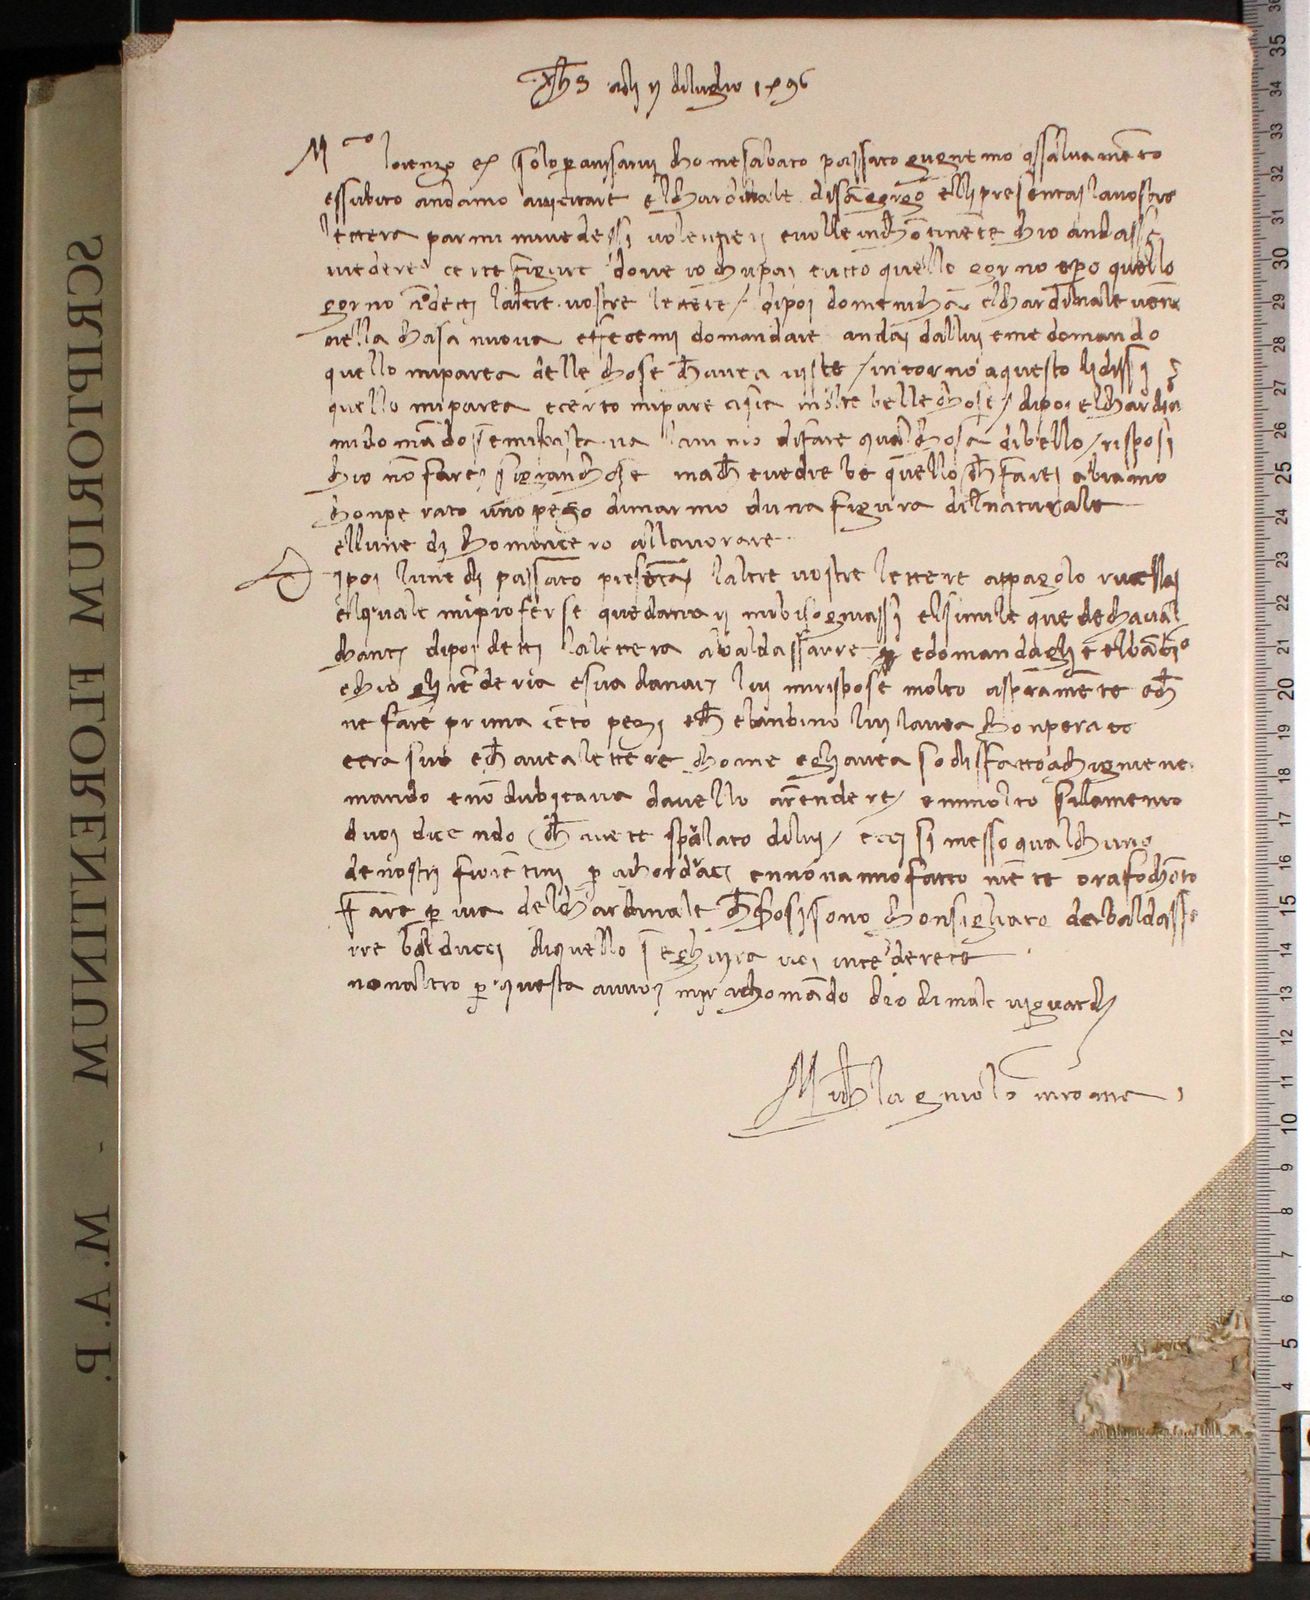 xhs adj ij diluglo 1496
M co lorenzo ex solo p avisarvj chome sabato passato gugnemo assalvamēto
essubito andamo avicitare el chardinale disā gorgo elli presentai lavostra
lettera parmi mi vedessi volentierj evolle indchōtinēte chio andassi
vedere certe figure dove io chupai tutto quello gorno epero quello
gorno nōdettj laltre vostre lettere / dipoi domenicha el chardinale vēne
nella chasa nuova effecemj domandare andai dallui eme domando
quello miparea delle chose ch avea viste / intorno aquesto lidissj
quello miparea ecerto mipare cisia molte belle chose / dipoi el chardinā
mi domādo semi bastava lanimo difare qualchosa dibello / risposi
chio nō farej sigranchose mach e vedrebe quello ch farej abiamo
chonperato uno pezo dimarmo duna figura di naturale
ellunedj chomincero allavorare
Dipoi lunedj passato presētai laltre vostre lettere appagolo rucellai
elquale miproferse que danarj mibisogniassj elsimile que de chaval
chantj dipoi dettj lalettera abaldassarre edomandaglie elbābino
echio glirēderia esua danarj lui mirispose molto asprāmēte ech
ne fare prima cēto pezi ech elbambino luj lavea chonperato
eera suo ech avea lettere chome eglj avea sodisfatto achi gniene
mando enō dubitava davello arrēndere / emmolto silamento
dvoj dicendo ch avete sparlato diluj / ecci si messo qualchuno
de nostrj fiorentinj p achordarcj ennōnānno fatto niēte orafochōto
fare p via delchardinale ch chosj sono chonsigliato da baldassa
rre balduccj diquello seghuira voi intēderete
nonaltro p questa avvoj mi rachomādo dio di male vi guardj
Michelagniolo inroma
SCRIPTORIUM FLORENTINUM - W. A. P.
36
35
34
33
32
31
30
29
28
27
26
25
24
23
22
21
20
19
18
17
16
15
14
13
12
11
10
9
8
7
6
5
4
3
2